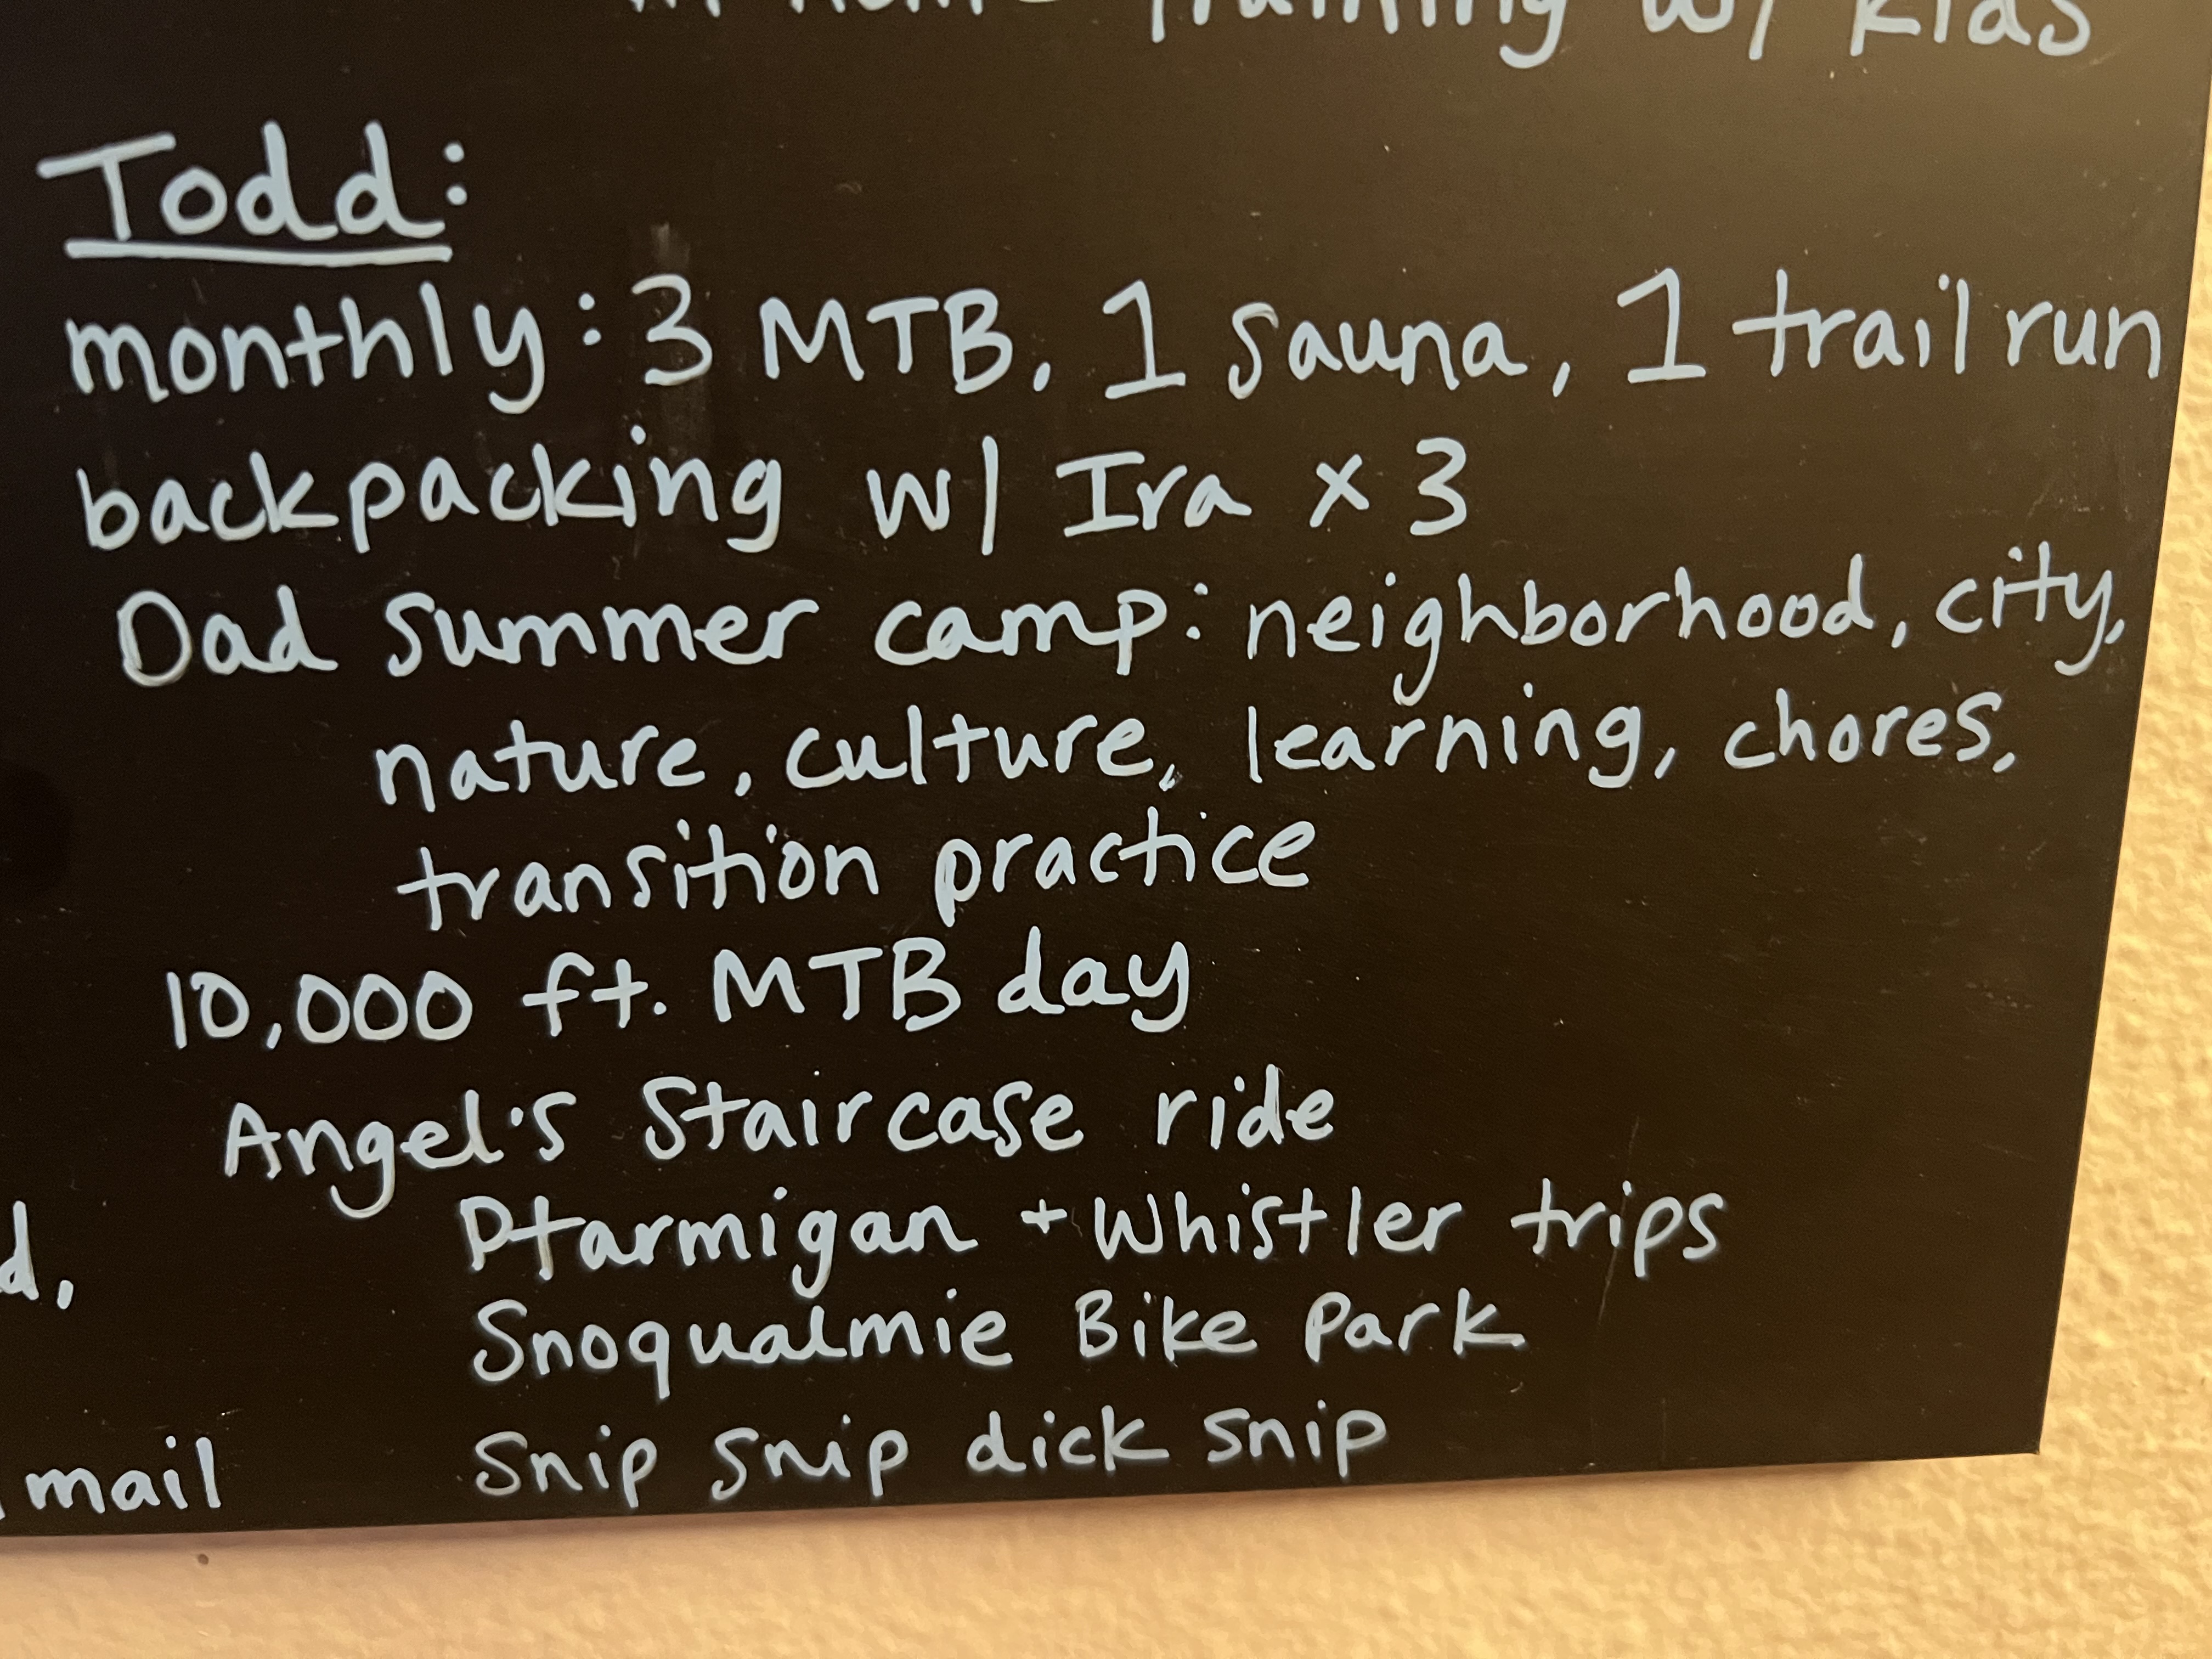 Training w/ kids
Todd:
monthly: 3 MTB, 1 sauna, 1 trail run
backpacking w/ Ira x 3
Dad summer camp: neighborhood, city,
nature, culture, learning, chores,
transition practice
10,000 ft. MTB day
Angel's Staircase ride
d,
Ptarmigan + Whistler trips
Snoqualmie Bike Park
mail
Snip snip dick snip